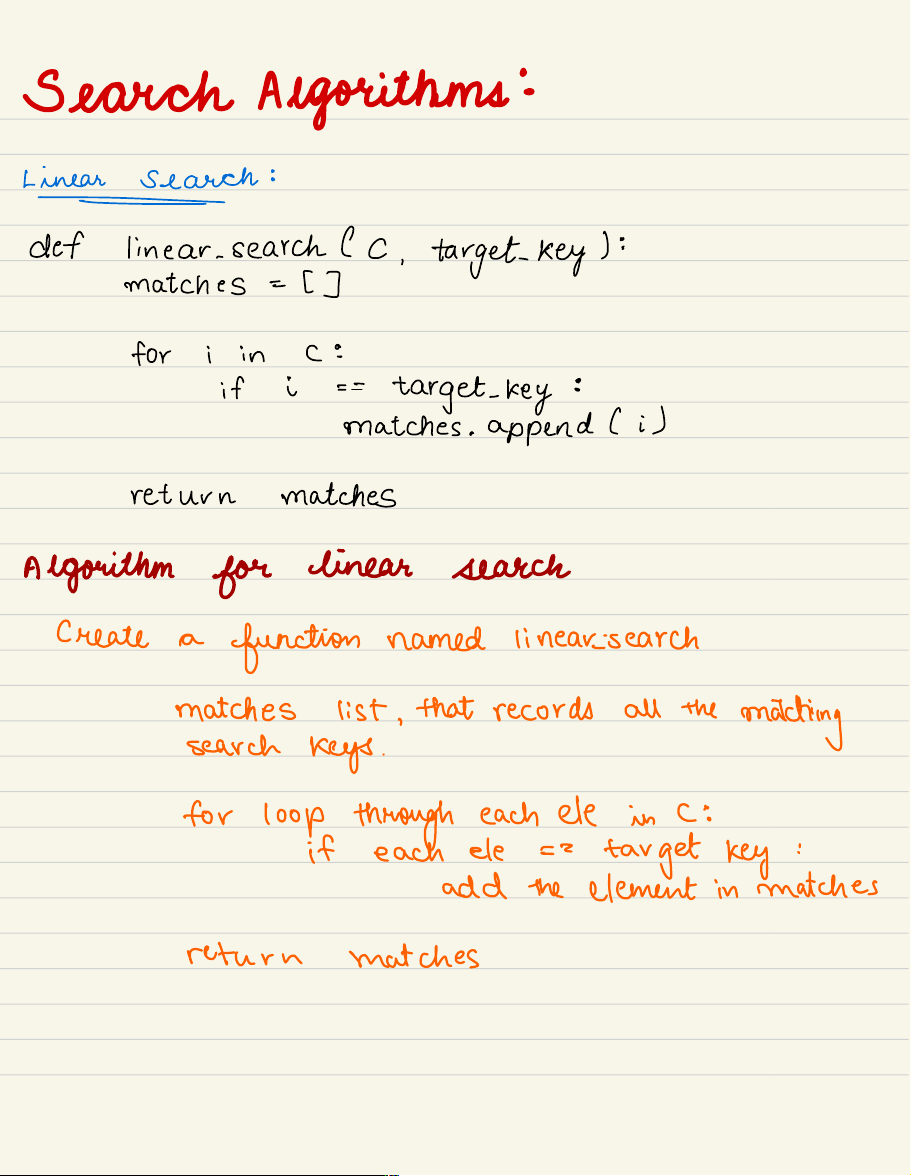 Search Algorithms:
Linear Search:
def linear_search ( C, target_key ):
matches = []
for i in C:
if i == target_key :
matches. append ( i )
return matches
Algorithm for linear search
Create a function named linear_search
matches list, that records all the matching
search keys.
for loop through each ele in C:
if each ele == target key :
add the element in matches
return matches